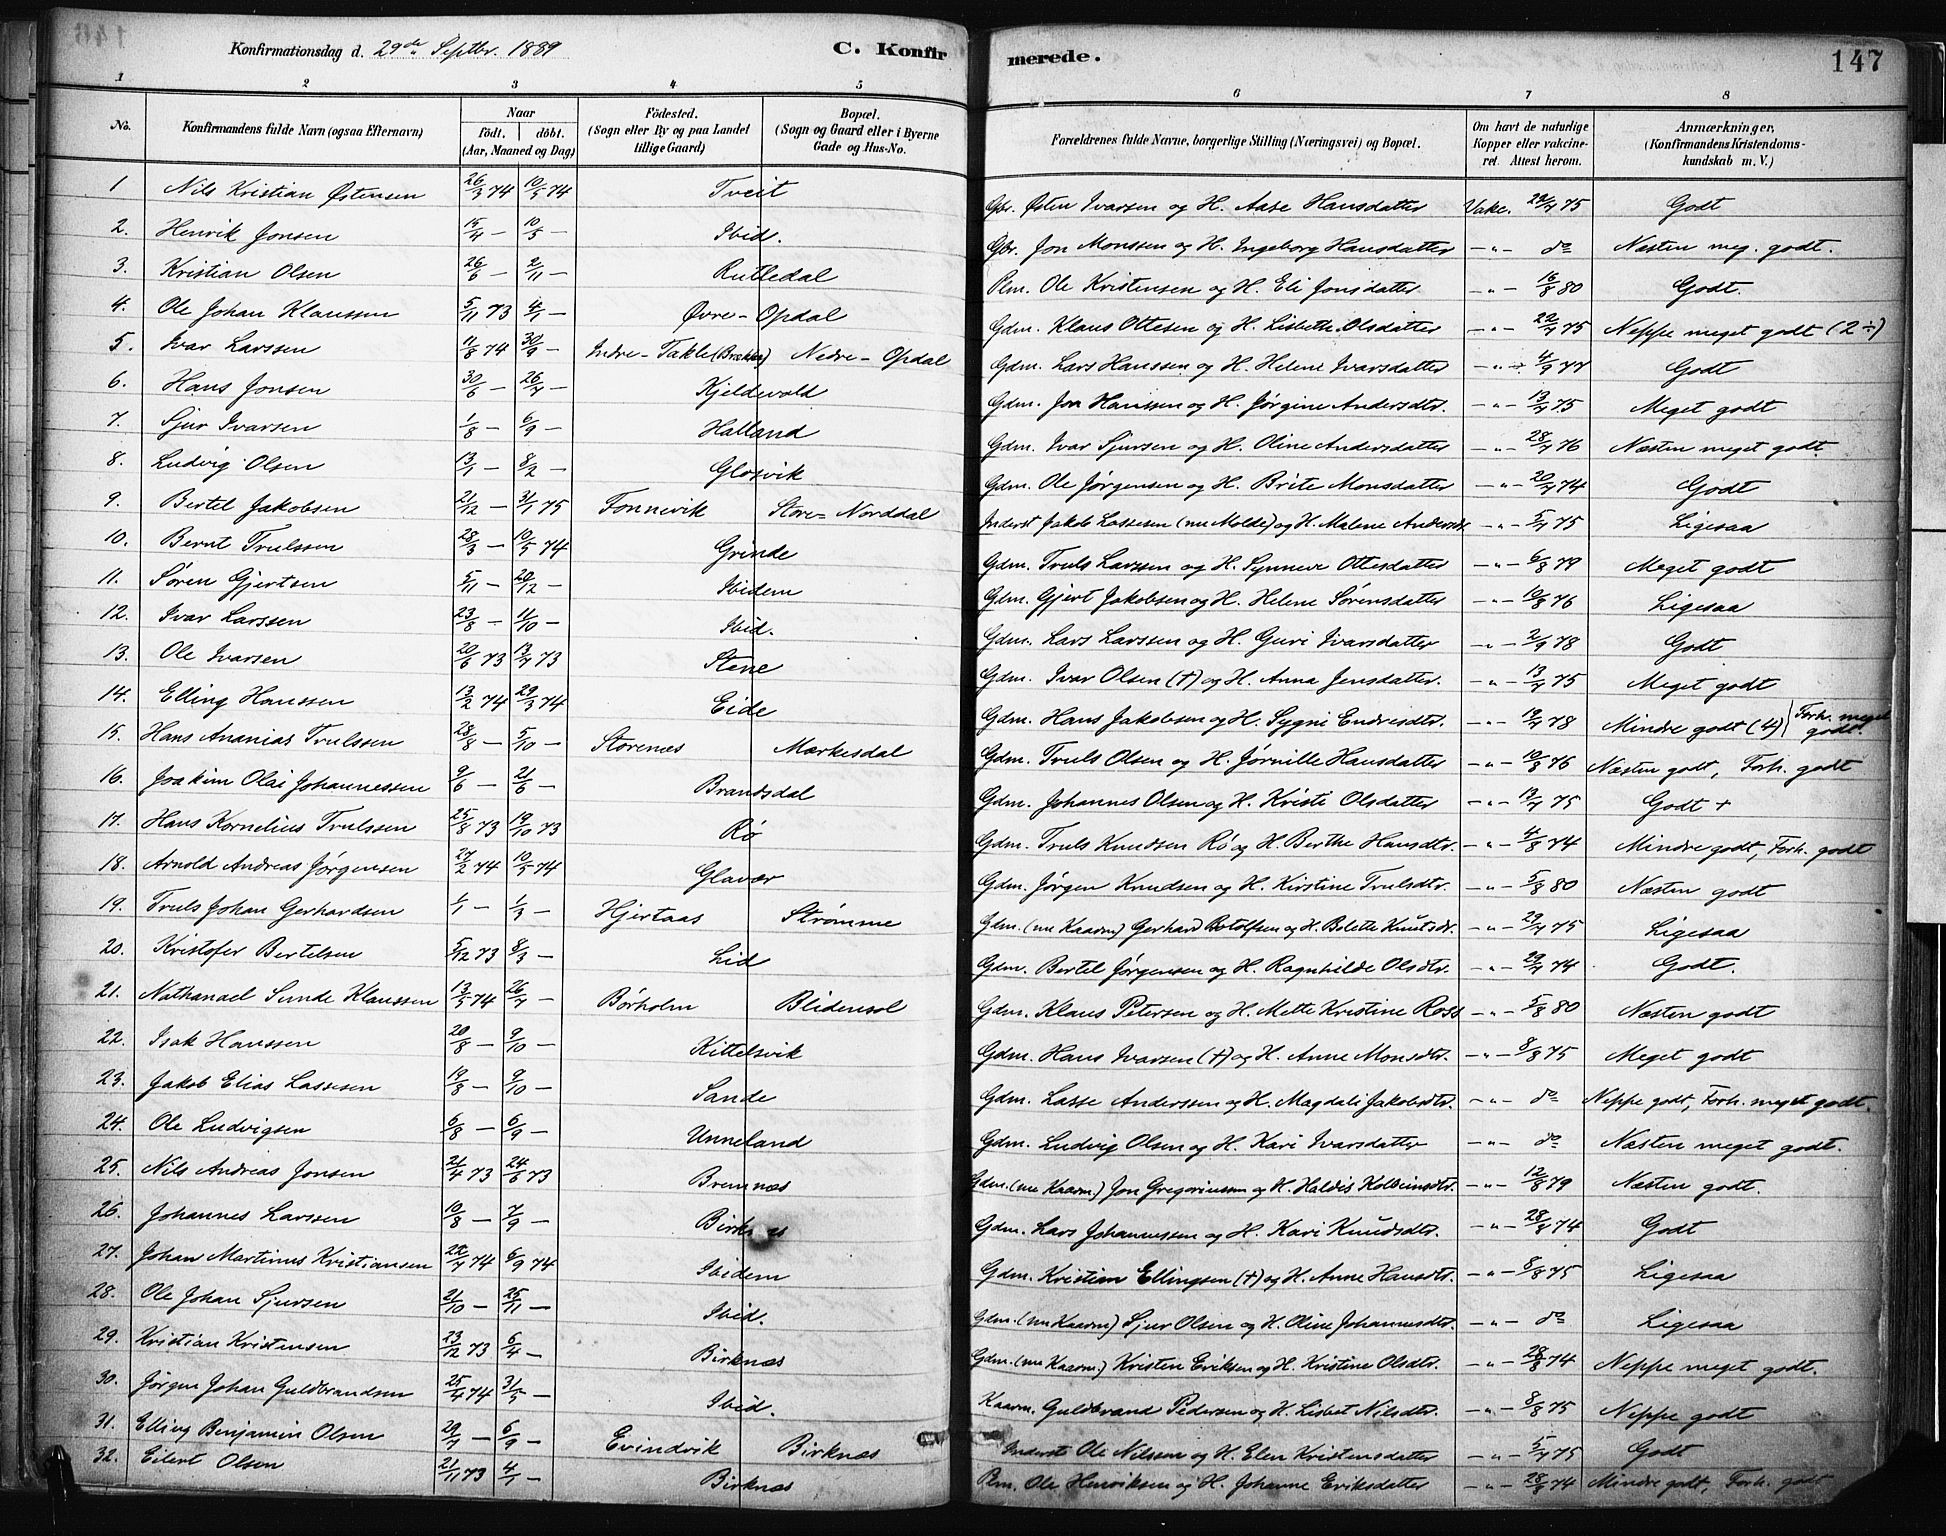 Konfirmationsdag d. 29de Septbr. 1889 C. Konfirmerede. 147
1 2 3 4 5 6 7 8
No. Konfirmandens fulde Navn (ogsaa Efternavn) Naar født. døbt. (Aar, Maaned og Dag) Fødested. (Sogn eller By og paa Landet tillige Gaard) Bopæl. (Sogn og Gaard eller i Byerne Gade og Hus-No. Forældrenes fulde Navne, borgerlige Stilling (Næringsvei) og Bopæl. Om havt de naturlige Kopper eller vakcineret. Attest herom. Anmærkninger, (Konfirmandens Kristendomskundskab m. V.)
1 Nils Kristian Østensen 26/3 74 10/5 74 Tveit Gbr. Østen Ivarsen og H. Aase Hansdatter Vakc. 22/7 75 Godt
2. Henrik Jonsen 15/4 — 10/5 — Ibid. Gbr. Jon Monssen og H. Ingeborg Hansdatter —"— do Næsten meg. godt.
3. Kristian Olsen 26/6 — 2/11 — Rutledal Plm. Ole Kristensen og H. Eli Jonsdatter —"— 16/8 80 Godt.
4. Ole Johan Klaussen 5/11 73 4/1 — Øvre-Opdal Gdm. Klaus Ottesen og H. Lisbette Olsdatter —"— 22/7 75 Neppe meget godt (2÷)
5. Ivar Larssen 11/8 74 30/9 — Indre-Takle (Brekke) Nedre-Opdal Gdm. Lars Hanssen og H. Helene Ivarsdatter —"— 4/9 77 Godt
6. Hans Jonsen 30/6 — 26/7 — Kjeldevold Gdm. Jon Hanssen og H. Jørgine Andersdtr. —"— 13/7 75 Meget godt
7. Sjur Ivarsen 1/8 — 6/9 — Halland Gdm. Ivar Sjursen og H. Oline Andersdatter —"— 28/7 76 Næsten meget godt.
8. Ludvig Olsen 13/1 — 8/2 — Glosvik Gdm. Ole Jørgensen og H. Brite Monsdatter —"— 20/7 74 Godt
9. Bertel Jakobsen 21/12 — 31/1 75 Tonnevik Store-Norddal Inderst Jakob Lassesen (nu Molde) og H. Malene Andersdr. —"— 5/7 75 Ligesaa
10. Bernt Trulssen 28/3 — 10/5 74 Grinde Gdm. Truls Larssen og H. Synneve Ottesdatter —"— 6/8 79 Meget godt
11. Søren Gjertsen 5/11 — 20/12 — Ibidem Gdm. Gjert Jakobsen og H. Helene Sørensdatter —"— 10/8 76 Ligesaa
12. Ivar Larssen 23/8 — 11/10 — Ibid. Gdm. Lars Larssen og H. Guri Ivarsdatter —"— 2/9 78 Godt
13. Ole Ivarsen 20/6 73 13/7 73 Stene Gdm. Ivar Olsen (†) og H. Anna Jensdatter. —"— 13/7 75 Meget godt
14. Elling Hanssen 13/2 74 29/3 74 Eide Gdm. Hans Jakobsen og H. Sygni Endresdtr. —"— 12/7 78 Mindre godt (4) Forh. meget godt.
15. Hans Ananias Trulssen 28/8 — 5/10 — Storenæs Mærkesdal Gdm. Truls Olsen og H. Jørnille Hansdatter —"— 10/8 76 Næsten godt, Forh. godt
16. Joakim Olai Johannessen 9/6 — 21/6 — Brandsdal Gdm. Johannes Olsen og H. Kristi Olsdatter —"— 13/7 75 Godt +
17. Hans Kornelius Trulssen 25/8 73 19/10 73 Rø Gdm. Truls Knudsen Rø og H. Berthe Hansdtr. —"— 4/8 74 Mindre godt, Forh. godt
18. Arnold Andreas Jørgensen 27/2 74 10/5 74 Glavær Gdm. Jørgen Knudsen og H. Kirstine Trulsdtr. —"— 5/8 80 Næsten godt
19. Truls Johan Gerhardsen 1/1 — 1/3 — Hjertaas Strømme Gdm. (nu Kaarm.) Gerhard Botolfsen og H. Belette Knutsdr. —"— 29/7 75 Ligesaa
20. Kristofer Bertelsen 5/12 73 8/3 — Lid Gdm. Bertel Jørgensen og H. Ragnhilde Olsdtr. —"— 29/7 74 Godt.
21. Nathanael Sunde Klaussen 13/5 74 26/7 — Børholm Blidensol Gdm. Klaus Petersen og H. Mette Kristine Ross —"— 5/8 80 Næsten godt
22. Isak Hanssen 20/8 — 9/10 — Kittelsvik Gdm. Hans Ivarsen (†) og H. Anne Monsdtr. —"— 8/8 75 Meget godt
23. Jakob Elias Lassesen 19/8 — 9/10 — Sande Gdm. Lasse Anderssen og H. Magdali Jakobsdtr. —"— do Neppe godt, Forh. meget godt.
24. Ole Ludvigsen 6/8 — 6/9 — Unneland Gdm. Ludvig Olsen og H. Kari Ivarsdatter —"— do Næsten meget godt.
25. Nils Andreas Jonsen 21/4 73 24/6 73 Bremnæs Gdm. (nu Kaarm.) Jon Gregoriussen og H. Haldis Kolbeinsdtr. —"— 12/8 79 Næsten godt.
26. Johannes Larssen 10/8 — 7/9 — Birknæs Gdm. Lars Johannessen og H. Kari Knudsdtr. —"— 28/8 74 Godt
27. Johan Martinus Kristiansen 22/7 74 6/9 74 Ibidem Gdm. Kristian Ellingsen (†) og H. Anne Hansdtr. —"— 8/8 75 Ligesaa
28. Ole Johan Sjursen 21/10 — 25/11 — Ibid. Gdm. (nu Kaarm) Sjur Olsen og H. Oline Johannesdtr. —"— do Ligesaa
29. Kristian Kristensen 23/12 73 6/4 — Birknæs Gdm. (nu Kaarm.) Kristen Eriksen og H. Kristine Olsdtr. —"— 28/8 74 Neppe meget godt.
30. Jørgen Johan Guldbrandsen 25/4 74 31/5 — Ibid. Kaarm. Guldbrand Pedersen og H. Lisbet Nilsdtr. —"— 8/8 75 Neppe godt
31. Elling Benjamin Olsen 29/7 — 6/9 — Evindvik Birknæs Inderst Ole Nilssen og H. Elen Kristensdatter —"— 5/7 75 Godt
32. Eilert Olsen 21/11 73 4/1 — Birknæs Plm. Ole Henriksen og H. Johanne Eriksdatter —"— 28/8 74 Mindre godt, Forh. godt